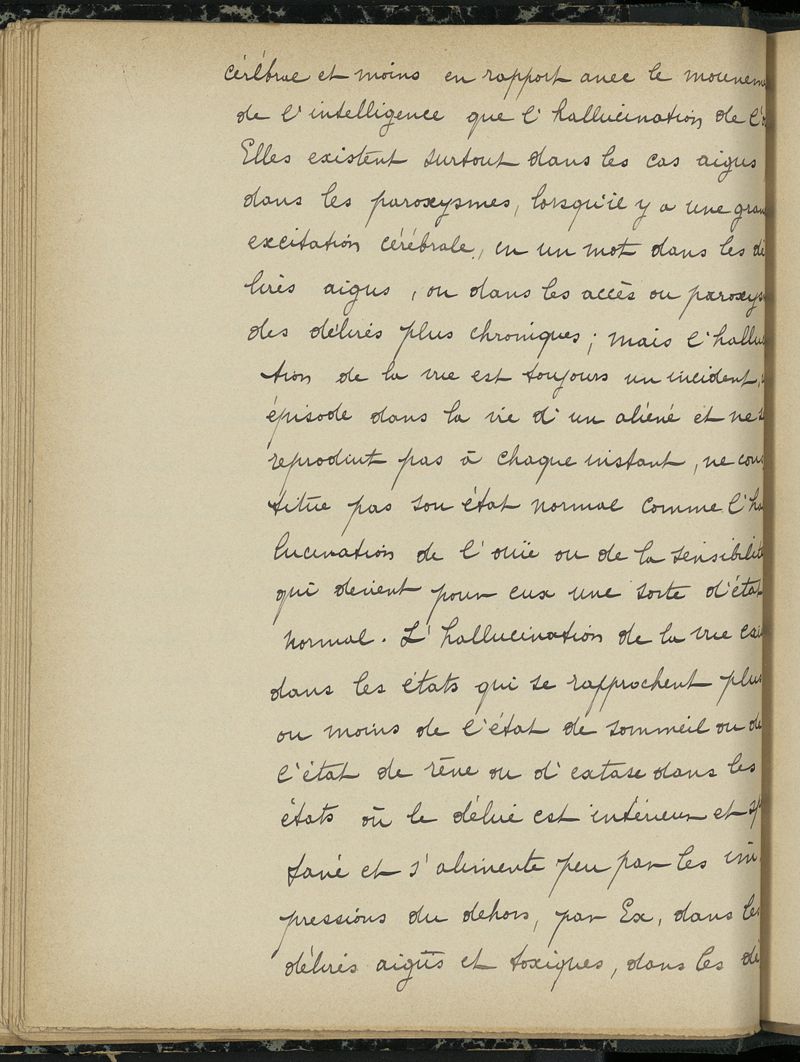 cérébrale et moins en rapport avec le mouveme
de l'intelligence que l'hallucination de l'o
Elles existent surtout dans les cas aigus
dans les paroxysmes, lorsqu'il y a une gran
excitation cérébrale, en un mot dans les dé
lires aigus, ou dans les accès ou paroxys
des délires plus chroniques; mais l'hallu
tion de la vue est toujours un incident,
épisode dans la vie d'un aliéné et ne s
reproduit pas à chaque instant, ne cons
titue pas son état normal comme l'ha
lucination de l'ouïe ou de la sensibilité
qui devient pour eux une sorte d'état
normal. L'hallucination de la vue exis
dans les états qui se rapprochent plus
ou moins de l'état de sommeil ou de
l'état de rêve ou d'extase dans les
états où le délire est intérieur et sp
tané et s'alimente peu par les im
pressions du dehors, par Ex, dans les
délires aigus et toxiques, dans les dé